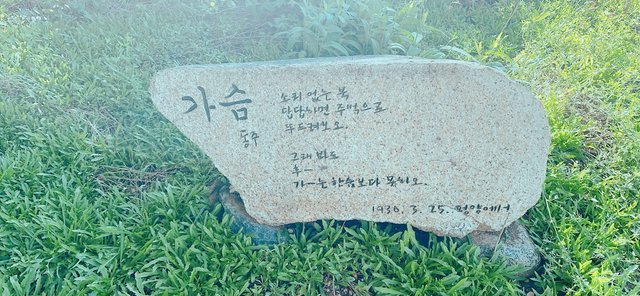 가슴
동주
소리 없는 북
답답하면 주먹으로
뚜드려보오.
그래 봐도
후—
가—는 한숨보다 못하오.
1936. 3. 25. 평양에서